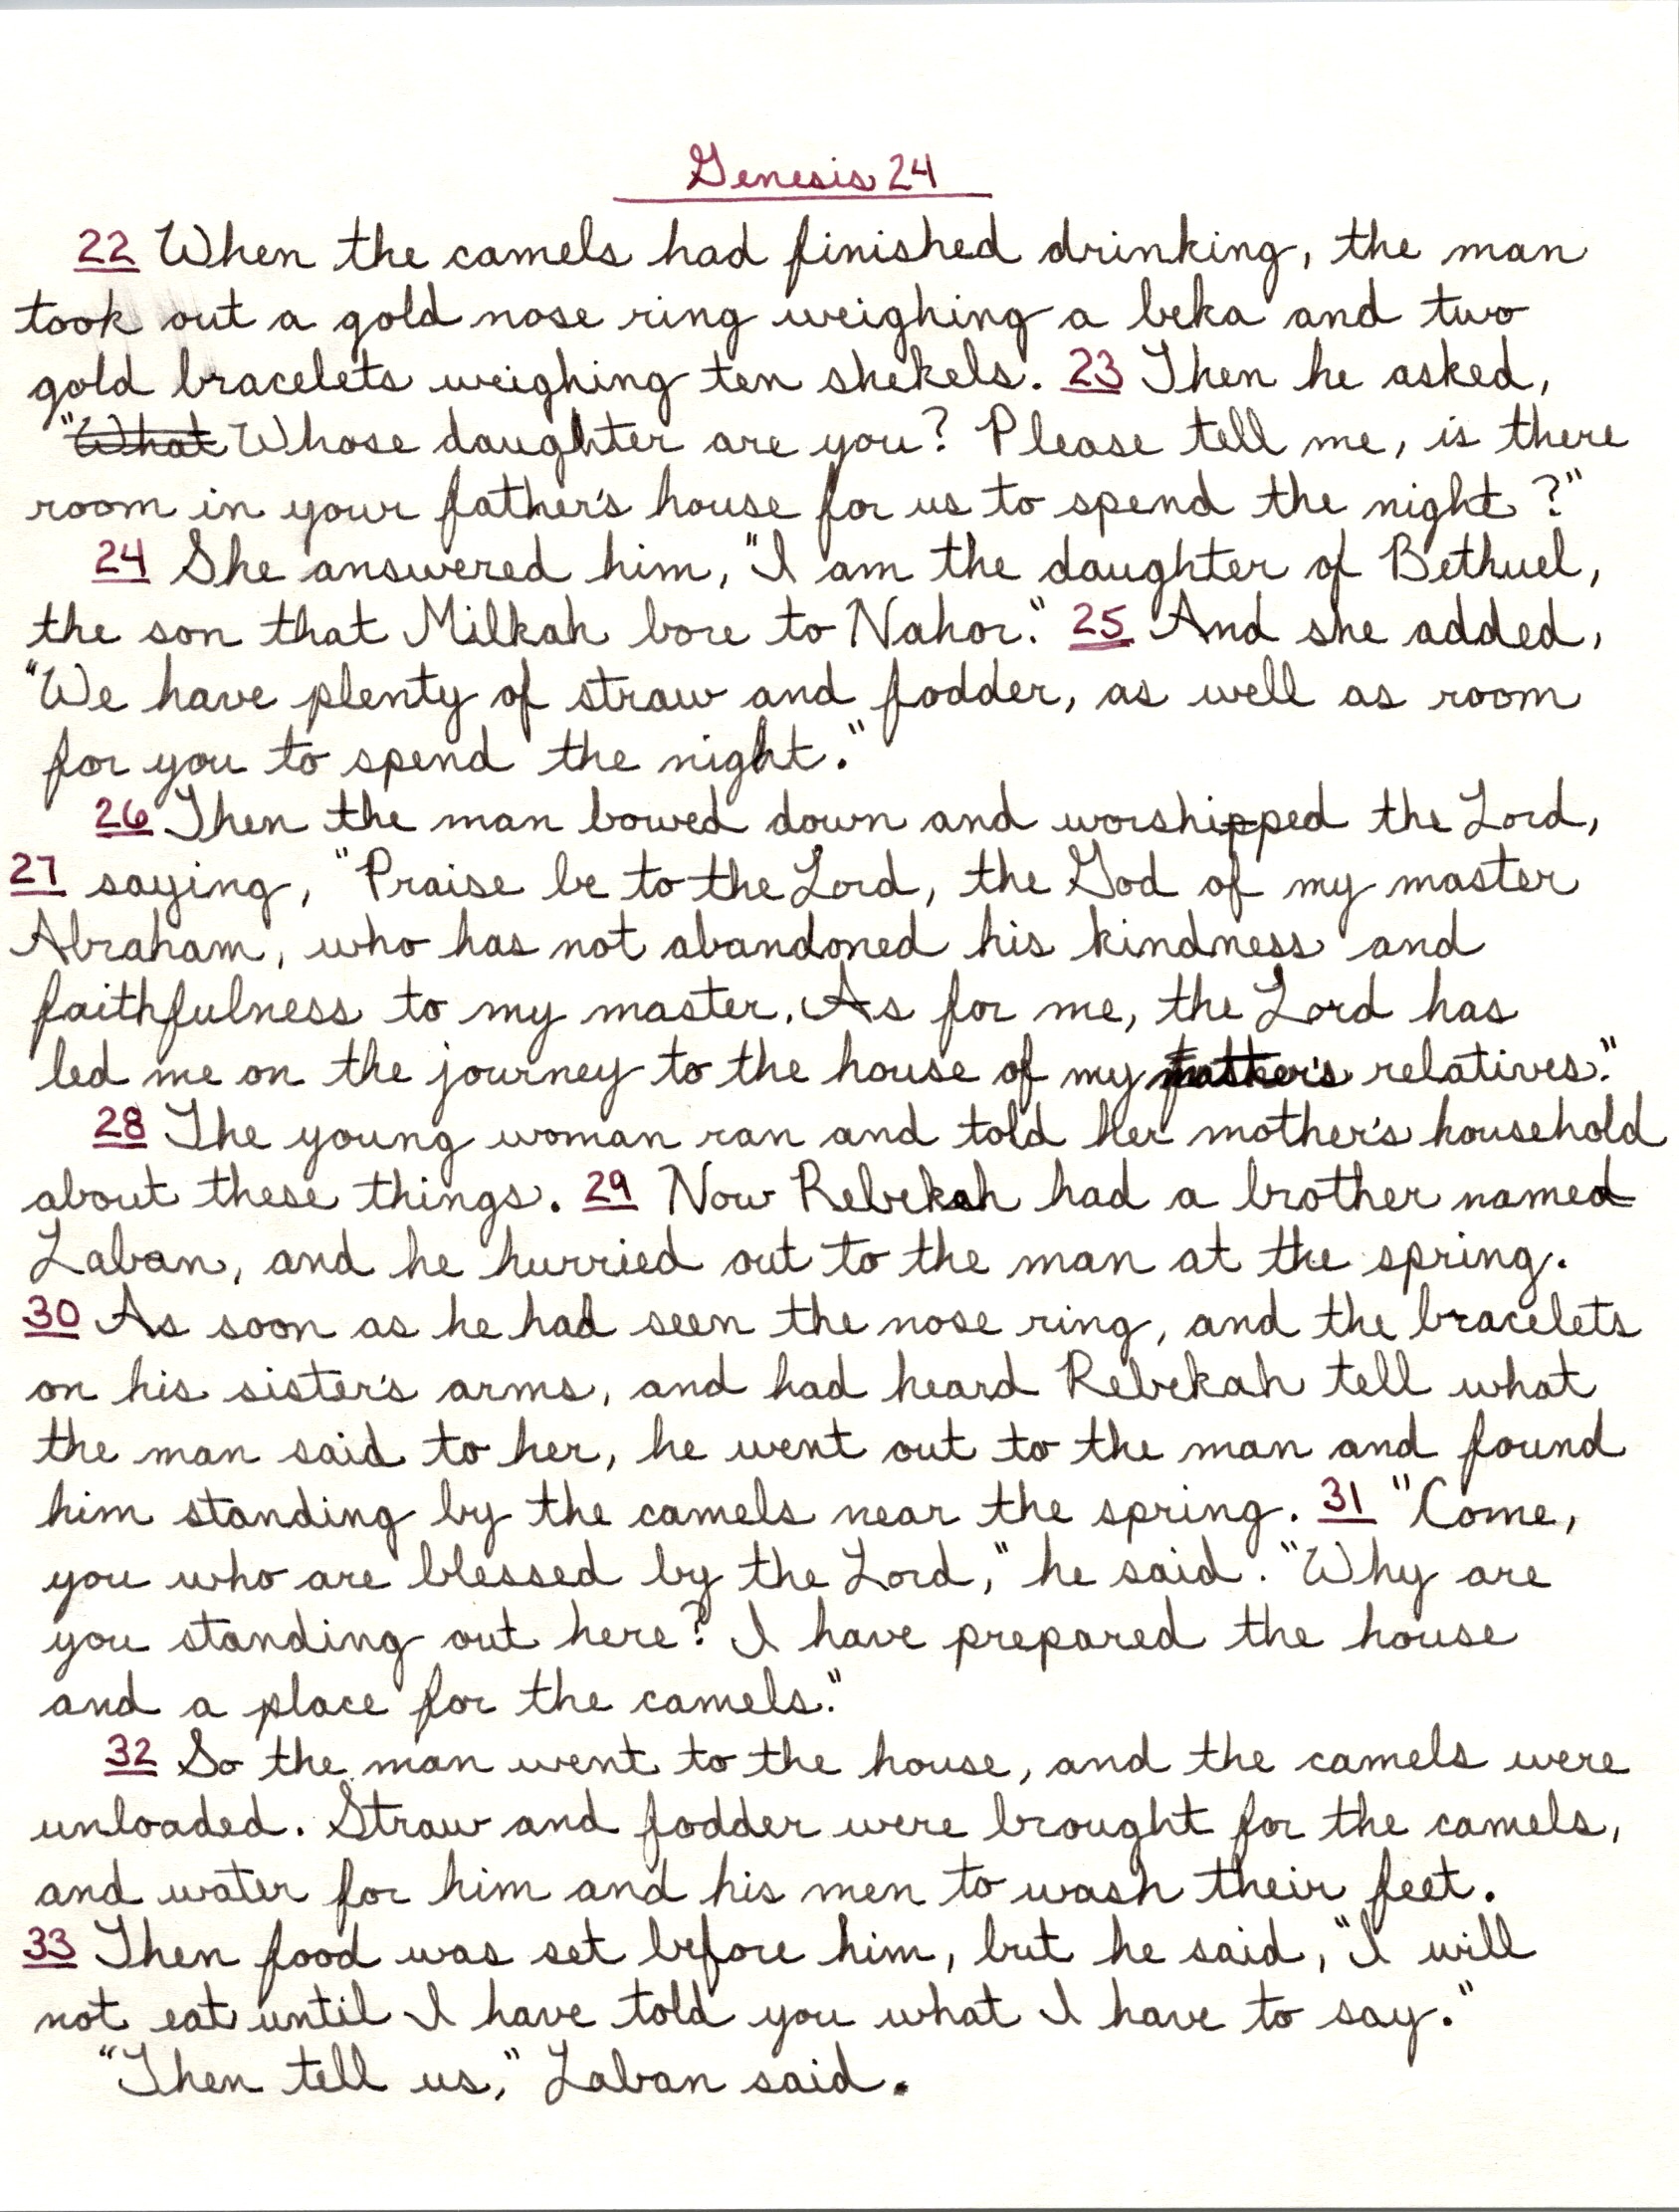 Genesis 24
22 When the camels had finished drinking, the man
took out a gold nose ring weighing a beka and two
gold bracelets weighing ten shekels. 23 Then he asked,
"What Whose daughter are you? Please tell me, is there
room in your father's house for us to spend the night?"
24 She answered him, "I am the daughter of Bethuel,
the son that Milkah bore to Nahor." 25 And she added,
"We have plenty of straw and fodder, as well as room
for you to spend the night."
26 Then the man bowed down and worshipped the Lord,
27 saying, "Praise be to the Lord, the God of my master
Abraham, who has not abandoned his kindness and
faithfulness to my master. As for me, the Lord has
led me on the journey to the house of my relatives."
28 The young woman ran and told her mother's household
about these things. 29 Now Rebekah had a brother named
Laban, and he hurried out to the man at the spring.
30 As soon as he had seen the nose ring, and the bracelets
on his sister's arms, and had heard Rebekah tell what
the man said to her, he went out to the man and found
him standing by the camels near the spring. 31 "Come,
you who are blessed by the Lord," he said. "Why are
you standing out here? I have prepared the house
and a place for the camels."
32 So the man went to the house, and the camels were
unloaded. Straw and fodder were brought for the camels,
and water for him and his men to wash their feet.
33 Then food was set before him, but he said, "I will
not eat until I have told you what I have to say."
"Then tell us," Laban said.